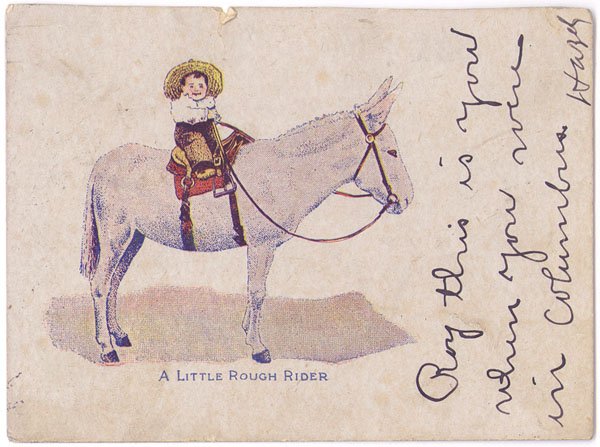 A LITTLE ROUGH RIDER
Roy this is you
when you were
in Columbus
Hazel